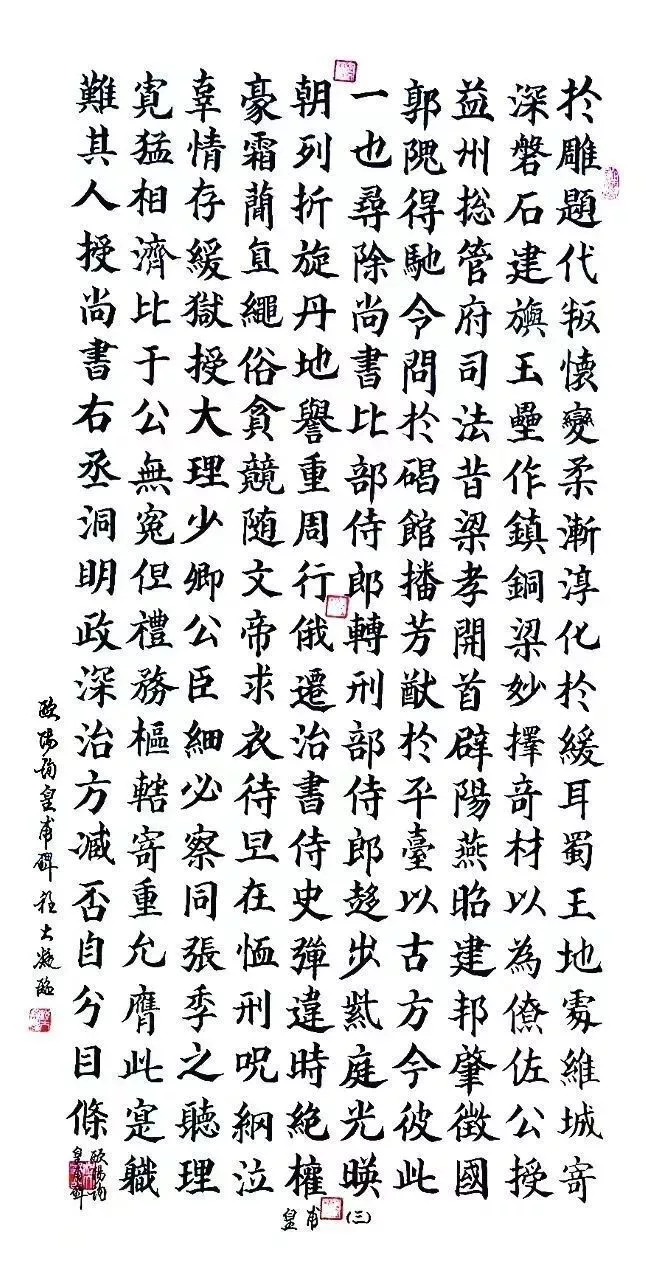 於雕題代叛懷變柔漸淳化於緩耳蜀王地處維城寄
深磐石建旟玉壘作鎮銅梁妙擇奇材以為僚佐公授
益州揔管府司法昔梁孝開首辟陽燕昭建邦肇徵國
郭隗得馳令問於碣館播芳猷於平臺以古方今彼此
一也尋除尚書比部侍郎轉刑部侍郎趍步紫庭光暎
朝列折旋丹地譽重周行俄遷治書侍史彈違時絕權
豪霜蕳直繩俗貪競随文帝求衣待旦在恤刑呪綱泣
辜情存緩獄授大理少卿公臣細必察同張季之聽理
寬猛相濟比于公無冤但禮務樞轄寄重允膺此寔職
難其人授尚書右丞洞明政深治方减否自分目條
歐陽詢皇甫碑程大凝臨
歐陽詢
皇甫碑
皇甫(三)